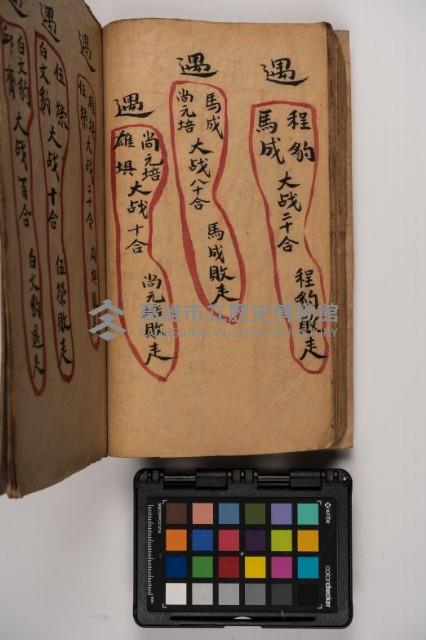 遇
程豹
馬成
大战二十合
程豹敗走
遇
馬成
尚元培
大战八十合
馬成敗走
遇
尚元培
雄埧
大战十合
尚元培敗走
遇
大战二十合
遇
伍榮
白文豹
大战十合
伍榮敗走
遇
白文豹
大战百合
白文豹退走
高雄市立歷史博物館
KAOHSIUNG MUSEUM OF HISTORY
x-rite
colorchecker